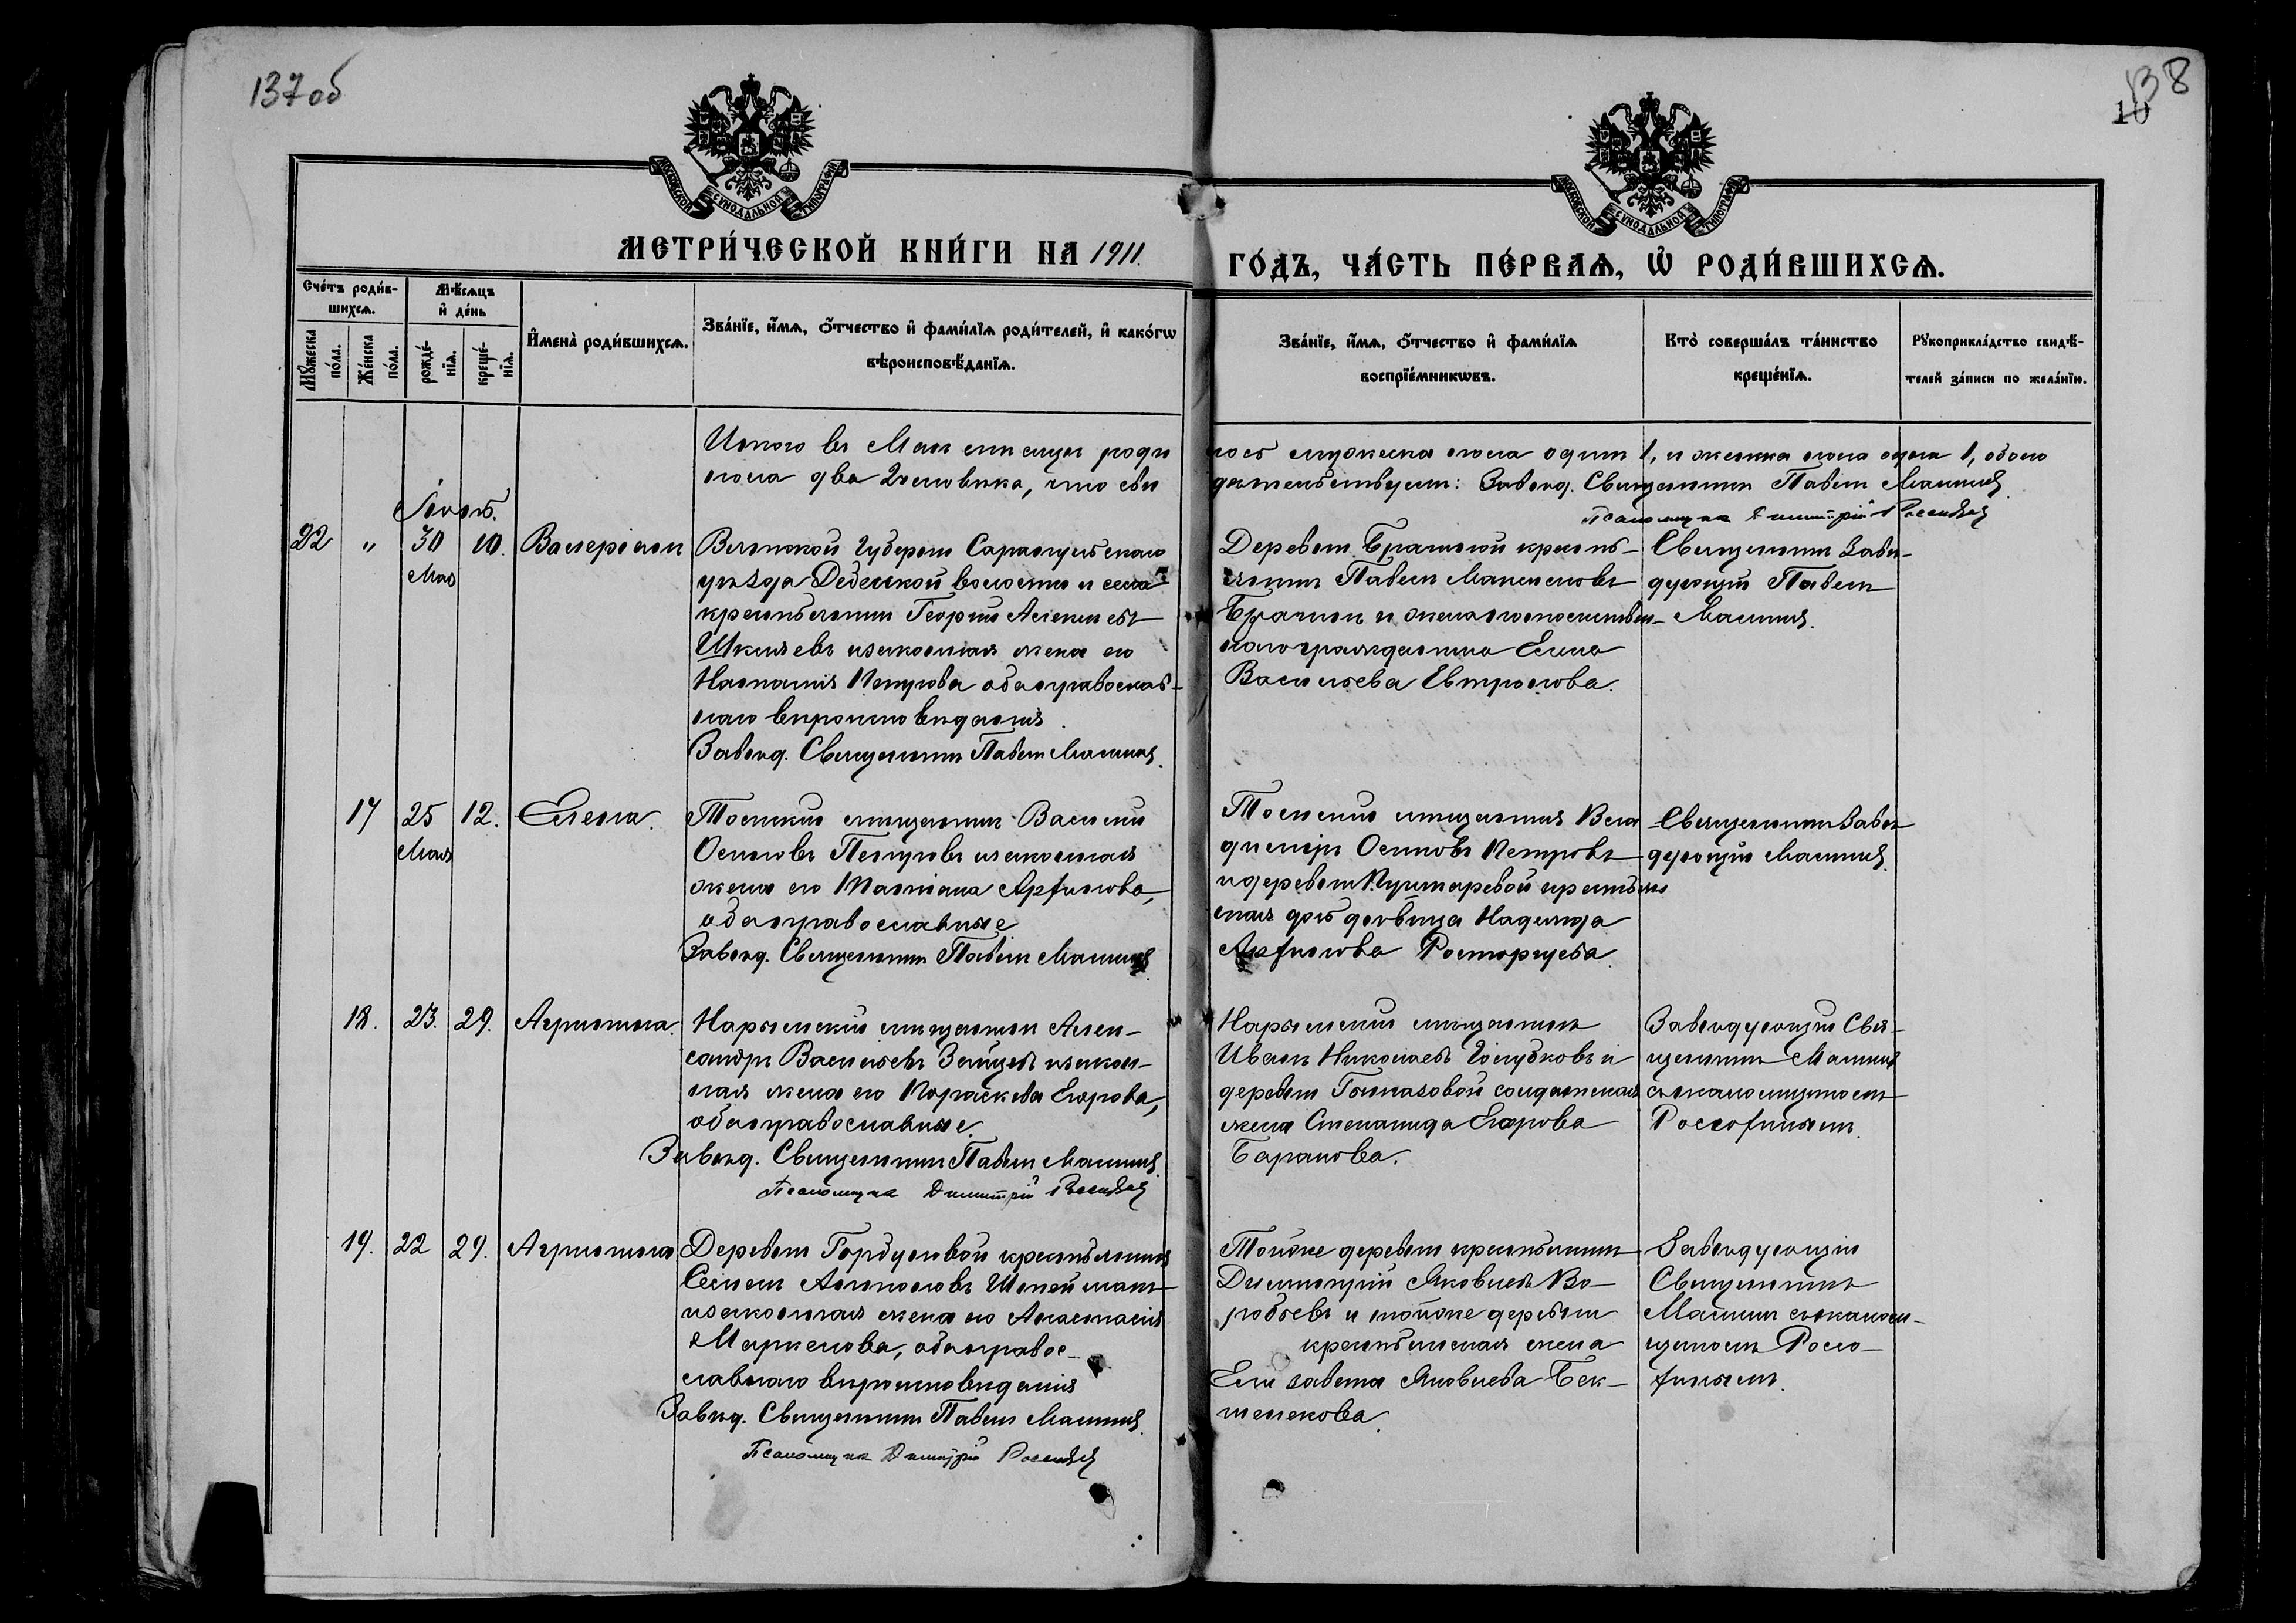 137об
138
10
МОСКОВСКОЙ СѴНОДАЛЬНОЙ ТИПОГРАФІИ
МОСКОВСКОЙ СѴНОДАЛЬНОЙ ТИПОГРАФІИ
МЕТРИ́ЧЕСКОЙ КНИ́ГИ НА 1911.
ГО́ДЪ, ЧА́СТЬ ПЕ́РВАѦ, Ѡ҆ РОДИ́ВШИХСѦ.
Сче́тъ роди́в-
шихсѧ.
Мѣ́сѧцъ
и҆ де́нь
Мꙋ́жеска
по́ла.
Же́нска
по́ла.
рожде́-
нїѧ.
креще́-
нїѧ.
И҆мена̀ роди́вшихсѧ.
Зва́нїе, и҆́мѧ, ѻ҆́тчество и҆ фами́лїѧ роди́телей, и҆ како́гѡ
вѣроисповѣ́данїѧ.
Зва́нїе, и҆́мѧ, ѻ҆́тчество и҆ фами́лїѧ
воспрїе́мникѡвъ.
Кто̀ соверша́лъ та́инство
креще́нїѧ.
Рꙋкоприкла́дство свидѣ́-
телей за́писи по жела́нїю.
Итого въ Маѣ мѣсяцѣ роди
пола два 2 человѣка, что сви
лось мужеска пола одинъ 1, и женска пола одна 1, обоего
дѣтельствуемъ: Завѣд. Священникъ Павелъ Малинъ
Псаломщикъ Димитрій
Іюнь.
22 " 30 10. Валеріанъ
Мая
Вятской Губерніи Сарапульскаго
уѣзда Дебесской волости и села
крестьянинъ Георгій Алексѣевъ
Шкляевъ и законная жена его
Наталія Петрова оба православ-
наго вѣроисповѣданія.
Завѣд. Священникъ Павелъ Малинъ.
Деревни Брагиной крестья-
нинъ Павелъ
Брагинъ и жена
наго гражданина Елена
Васильева
Священникъ Завѣ-
дующій Павелъ
Малинъ.
17 25 12. Елена.
Мая
Томскій мѣщанинъ Василій
Осиповъ Петровъ и законная
жена его Татіана Архипова,
оба православные
Завѣд. Священникъ Павелъ Малинъ
Томскій мѣщанинъ Вла
диміръ Осиповъ Петровъ
и деревни крестьян
ская дочь дѣвица Надежда
Архипова Расторгуева.
Священникъ Завѣ
дующій Малинъ.
18. 23. 29. Агриппина.
Нарымскій мѣщанинъ Алек-
сандръ Васильевъ Зайцевъ и закон-
ная жена его Параскева Егорова,
оба православные.
Завѣд. Священникъ Павелъ Малинъ.
Псаломщикъ Димитрій
Нарымскій мѣщанинъ
Иванъ Николаевъ Голубковъ и
деревни солдатская
жена Степанида Егорова
Баранова.
Завѣдующій Свя-
щенникъ Малинъ
съ псаломщикомъ
19. 22 29. Агриппина
Деревни Горбуновой крестьянинъ
и законная жена его Анастасія
Маркелова, оба правос-
лавнаго вѣроисповѣданія
Завѣд. Священникъ Павелъ Малинъ.
Псаломщикъ Димитрій
Тойже деревни крестьянинъ
Димитрій Яковлевъ Во-
робьевъ и тойже деревни
крестьянская жена
Елизавета Яковлева Бек-
Завѣдующій
Священникъ
Малинъ съ псалом-
щикомъ